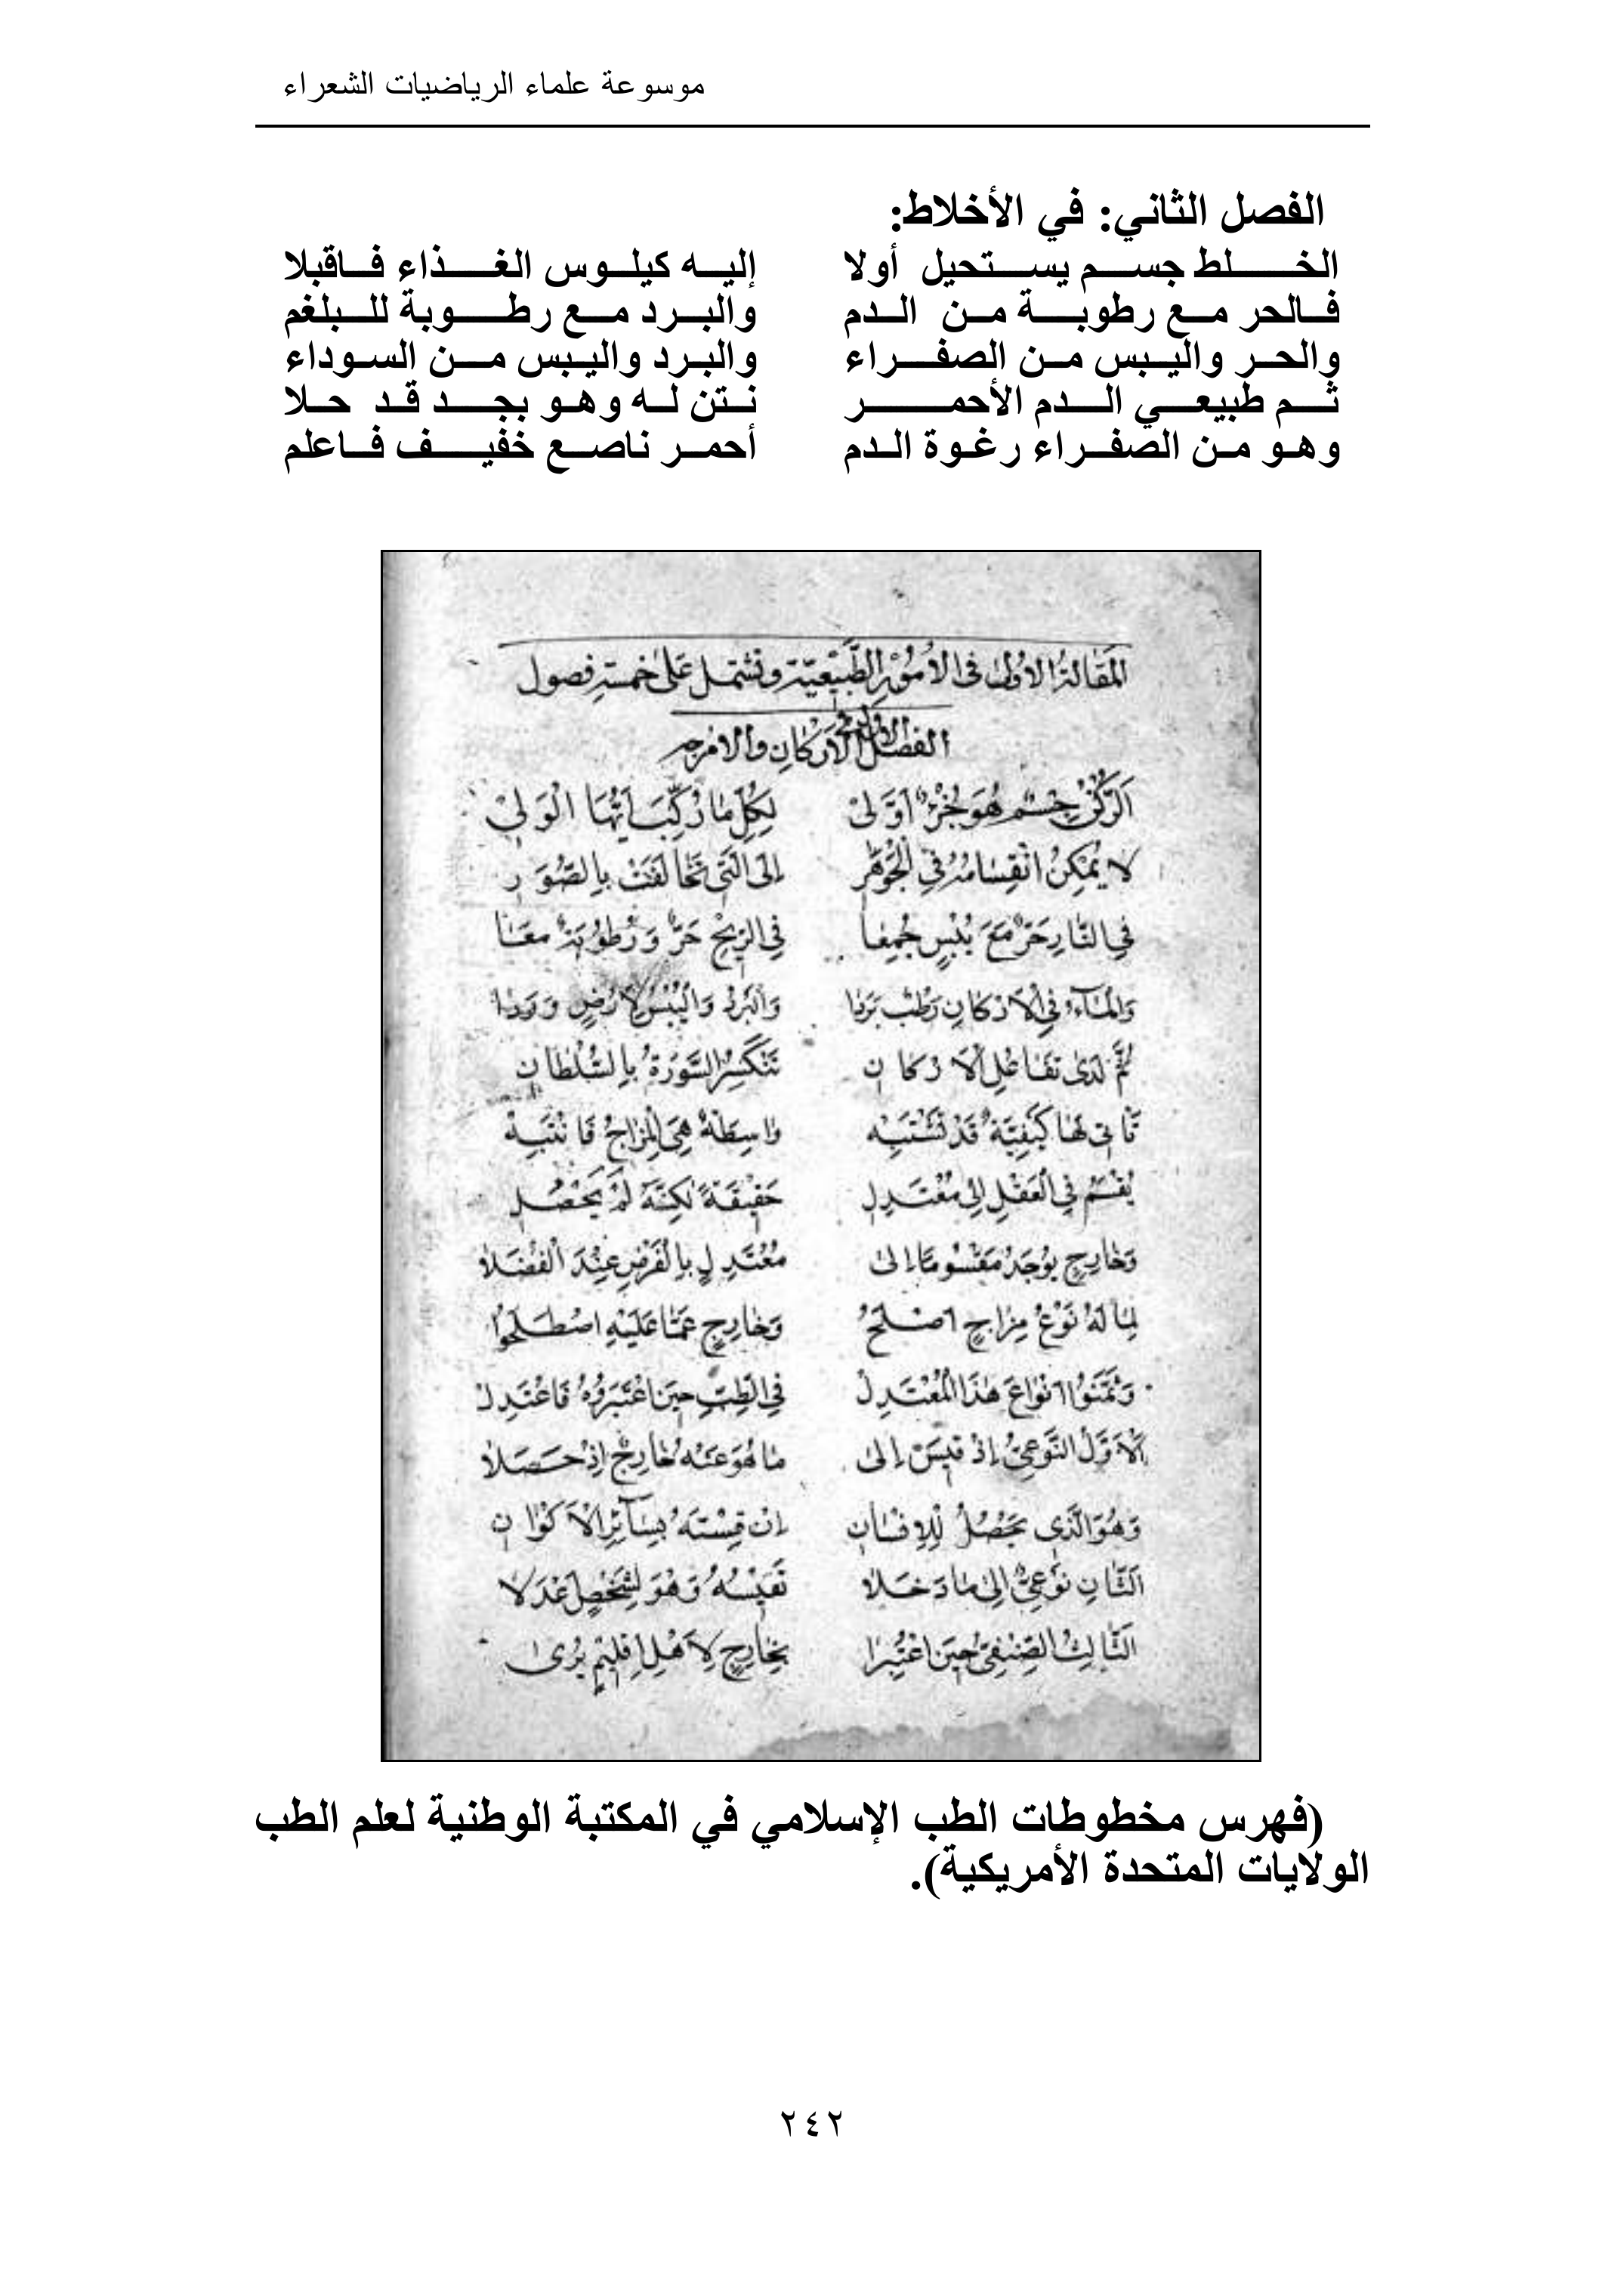 موسوعة علماء الرياضيات الشعراء
الفصل الثاني: في الأخلاط:
الخلط جسم يستحيل أولا إليه كيلوس الغذاء فاقبلا
فالحر مع رطوبة من الدم والبرد مع رطوبة للبلغم
والحر واليبس من الصفراء والبرد واليبس من السوداء
ثم طبيعي الدم الأحمر نتن له وهو بجد قد حلا
وهو من الصفراء رغوة الدم أحمر ناصع خفيف فاعلم
المَقَالَةُ الاُولىٰ فى الاُمُوْرِ الطَّبِيْعِيَّةِ وتشتمل عَلىٰ خمسةِ فصول
الفصل الاول فى الاَرْكَانِ والامزجه
اَلرُّكْنُ جِسْمٌ هُوَ جُزْءٌ اَوَّلىْ لِكُلِّ مَا رُكِّبَ اَيُّهَا الْوَلِىْ
لا يُمْكِنُ انْقِسَامُهُ فِى الْجَوْهَرِ اِلَى الَّتِى تَخَالَفَتْ بِالصُّوَرِ
فِى النَّارِ حَرٌّ مَعَ يُبْسٍ جُمِعَا فِى الرِّيْحِ حَرٌّ وَرُطُوْبَةٌ مَعَا
وَالْمَآءُ فِى الْاَرْكَانِ رَطْبٌ بَرَدَا وَالْبَرْدُ وَالْيُبْسُ لِاَرْضٍ وَرَدَا
ثُمَّ لَدٰى تَفَاعُلِ الْاَرْكَانِ تَنْكَسِرُ السَّوْرَةُ بِالسُّلْطَانِ
تَأتِى لَهَا كَيْفِيَّةٌ قَدْ تَشْتَبِهْ وَاسِطَةٌ هِىَ الْمِزَاجُ فَانْتَبِهْ
يُقْسَمُ فِى الْعَقْلِ اِلىٰ مُعْتَدِلِ حَقِيْقَةً لٰكِنَّهُ لَمْ يَحْصُلِ
وَخَارِجٍ يُوْجَدُ مَقْسُوْمًا اِلىٰ مُعْتَدِلٍ بِالْفَرْضِ عِنْدَ الْفُضَلَا
لِمَا لَهُ نَوْعُ مِزَاجٍ اَصْلَحُ وَخَارِجٍ عَمَّا عَلَيْهِ اصْطَلَحُوْا
وَثَمَّنُوْا اَنْوَاعَ هٰذَا الْمُعْتَدِلْ فِى الطِّبِّ حِيْنَ اعْتَبَرُوْهُ فَاعْتَدِلْ
اَلْاَوَّلُ النَّوْعِىُّ اِذْ قِيْسَ اِلىٰ مَا هُوَ عَنْهُ خَارِجٌ اِذْ حَصَلَا
وَهُوَ الَّذِى يَحْصُلُ لِلْاِنْسَانِ اِنْ قِسْتَهُ بِسَآئِرِ الْاَكْوَانِ
اَلثَّانِ نَوْعِىٌّ اِلىٰ مَا دَخَلَا تَقِيْسُهُ وَهْوَ لِشَخْصٍ عَدَلَا
اَلثَّالِثُ الصِّنْفِىُّ حِيْنَ اعْتُبِرَا بِخَارِجٍ لِاَهْلِ اِقْلِيْمٍ يُرىٰ
(فهرس مخطوطات الطب الإسلامي في المكتبة الوطنية لعلم الطب
الولايات المتحدة الأمريكية).
٢٤٢